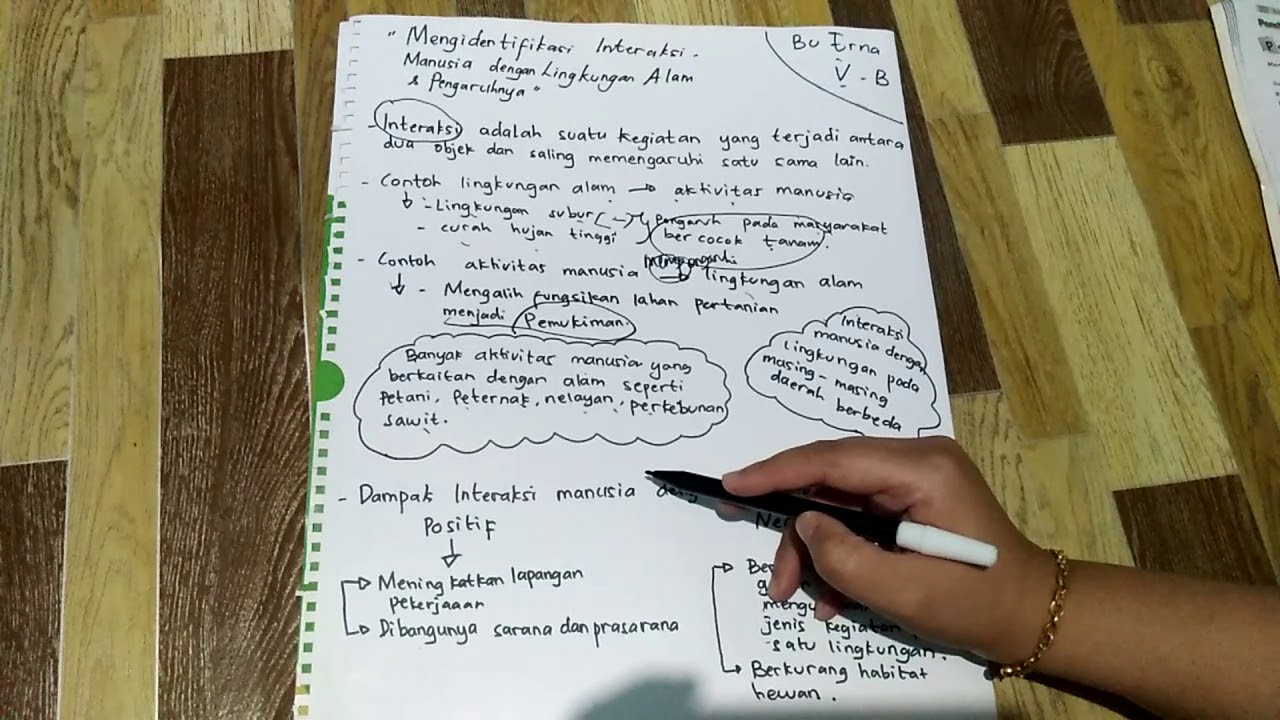 " Mengidentifikasi Interaksi.
Manusia dengan Lingkungan Alam
& Pengaruhnya "
Bu Erna
V - B
- Interaksi adalah suatu kegiatan yang terjadi antara
dua objek dan saling memengaruhi satu sama lain.
- Contoh lingkungan alam → aktivitas manusia
- Lingkungan subur
- curah hujan tinggi
Pengaruh pada masyarakat
ber cocok tanam.
- Contoh aktivitas manusia mempengaruhi lingkungan alam
- Mengalih fungsikan lahan pertanian
menjadi Pemukiman.
Banyak aktivitas manusia yang
berkaitan dengan alam seperti
Petani, Peternak, nelayan, perkebunan
sawit.
Interaksi
manusia dengan
lingkungan pada
masing - masing
daerah berbeda
- Dampak Interaksi manusia
Positif
Mening katkan lapangan
pekerjaaan
Dibangunya sarana dan prasarana
jenis kegiatan
satu lingkungan.
Berkurang habitat
hewan.